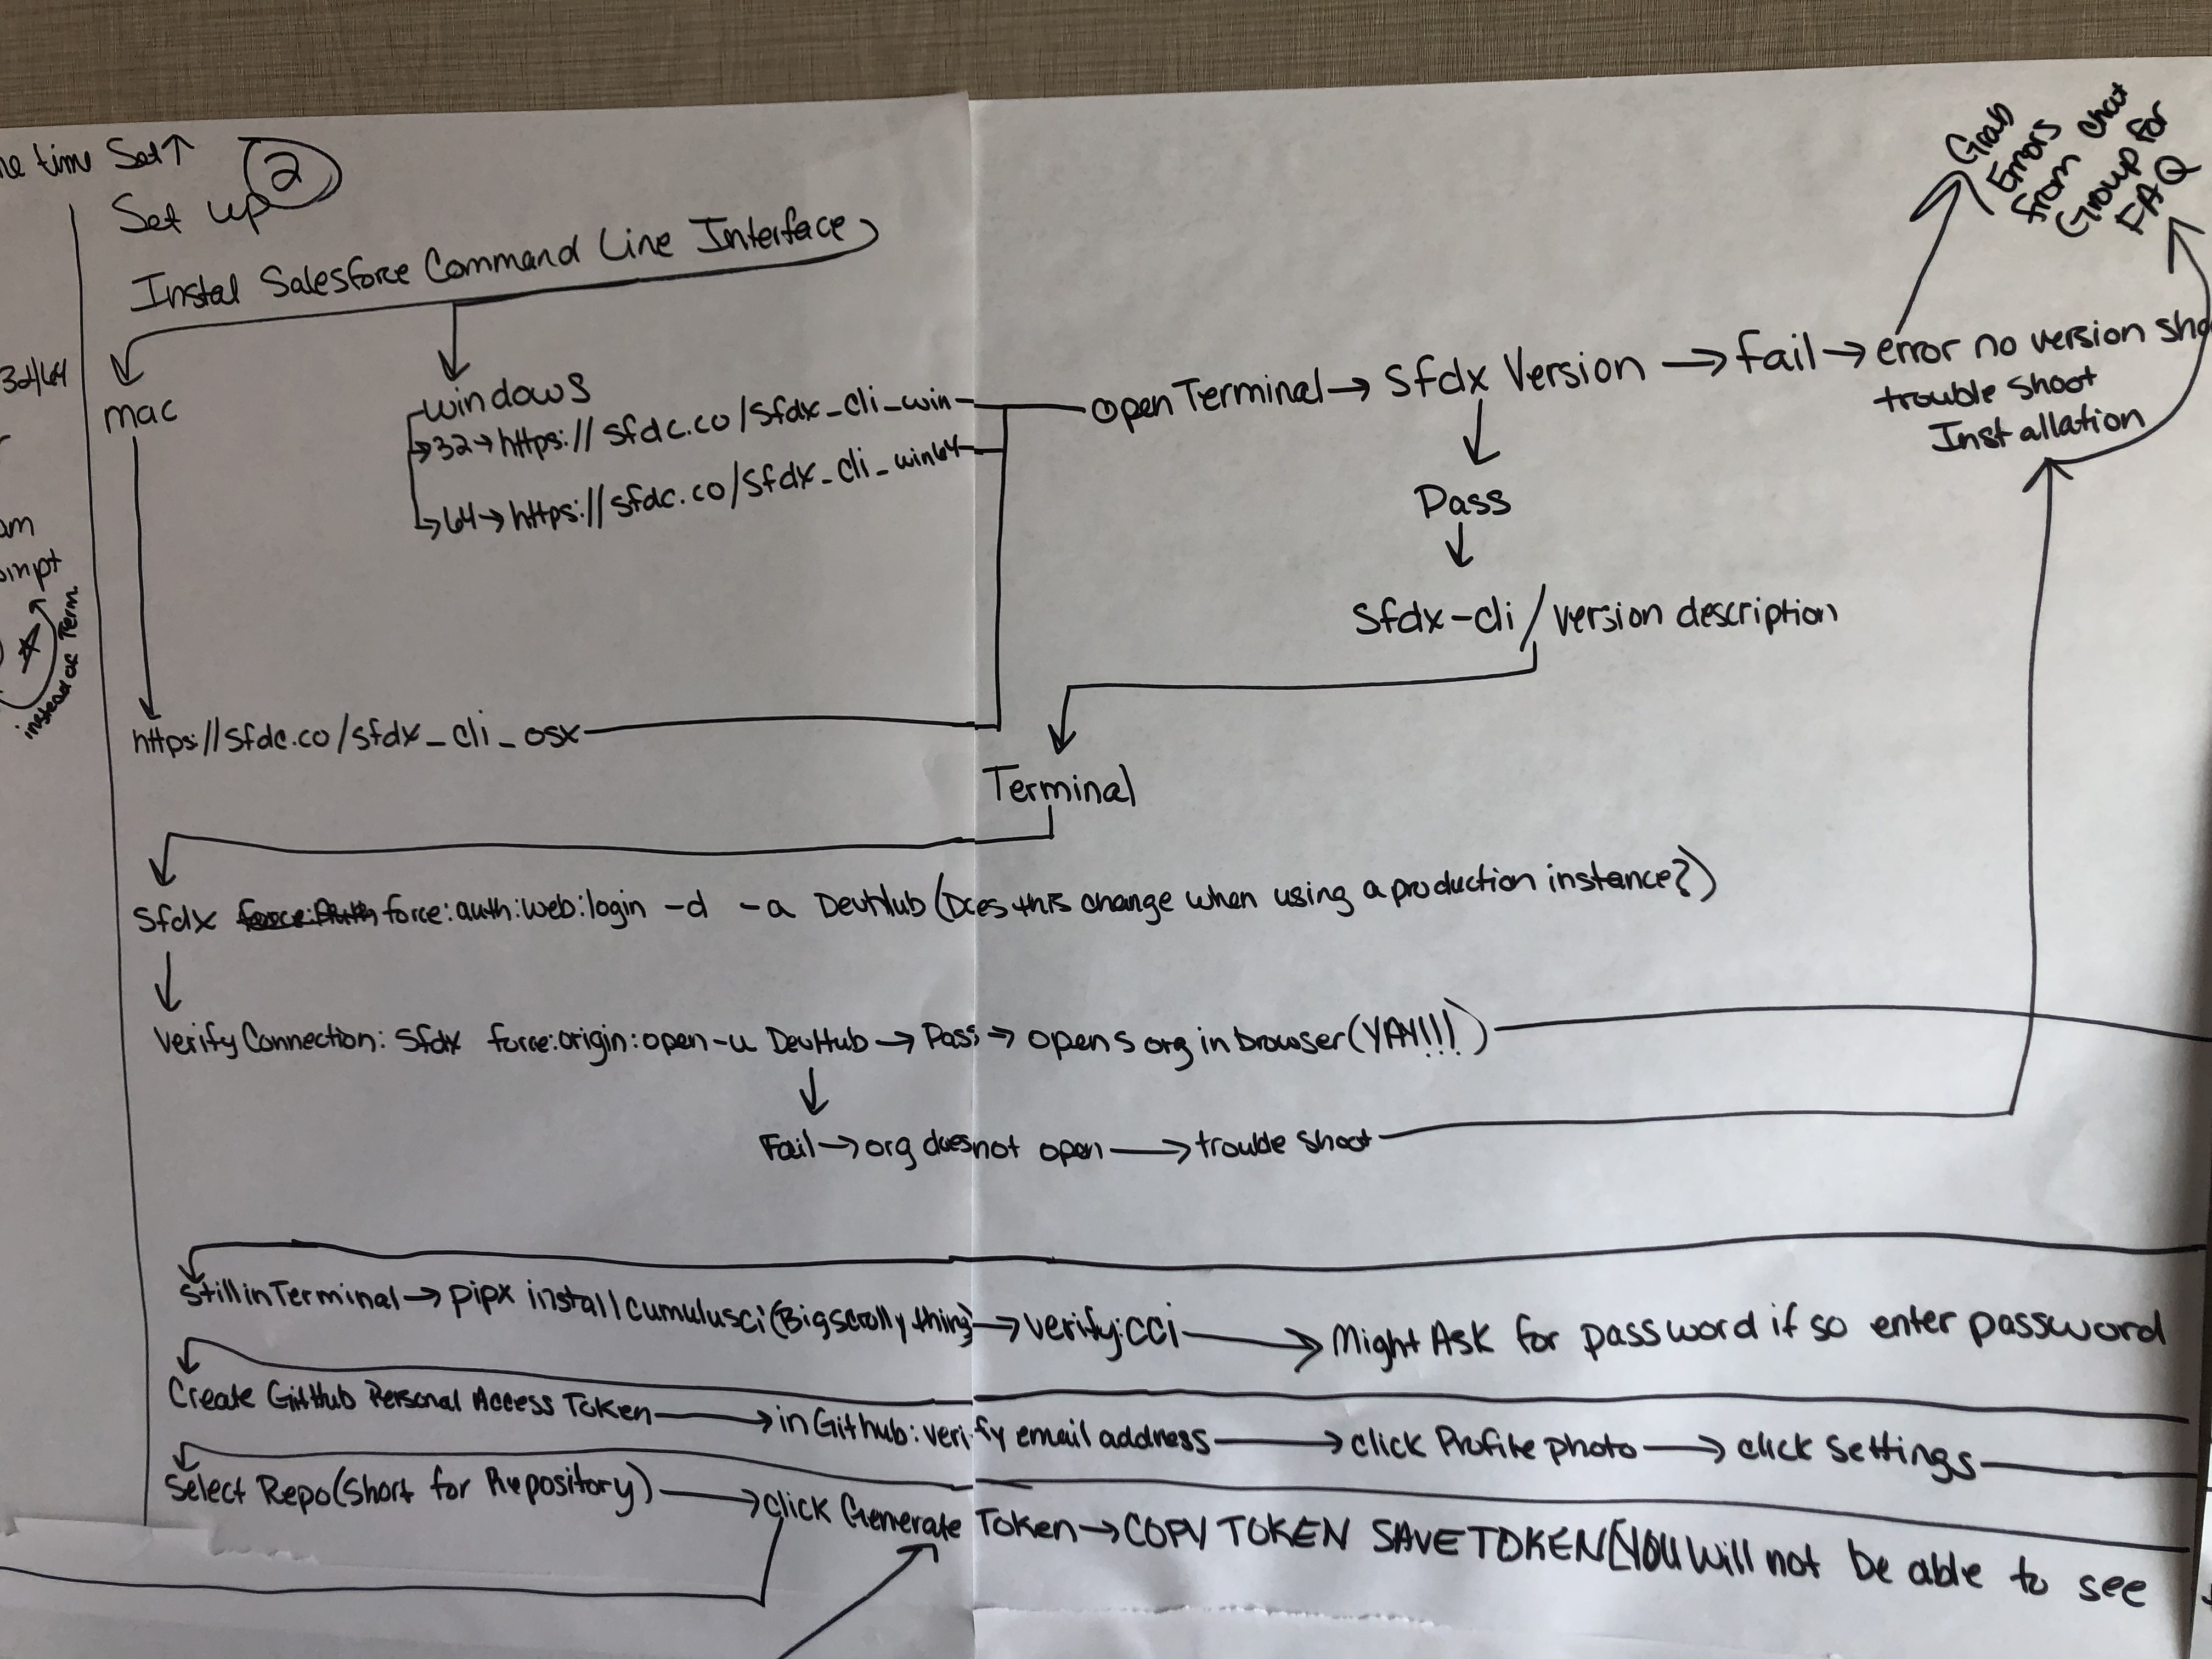 time Set↑
Set up
2
Instal Salesforce Command Line Interface
Grab
Errors
from chat
Group for
FAQ
32/64
mac
windows
32→https://sfdc.co/sfdx_cli_win
64→https://sfdc.co/sfdx_cli_win64
open Terminal→ Sfdx Version → fail→ error no version
trouble shoot
Installation
Pass
Sfdx-cli/version description
instead of Term
https://sfdc.co/sfdx_cli_osx
Terminal
Sfdx force:auth:web:login -d -a DevHub (Does this change when using a production instance?)
Verify Connection: Sfdx force:origin:open-u DevHub → Pass → opens org in browser(YAY!!!)
Fail→org does not open → trouble shoot
Still in Terminal→ pipx install cumulusci(Big scrolly thing)→ verify:cci → Might Ask for password if so enter password
Create GitHub Personal Access Token → in Github: verify email address → click Profile photo → click Settings
Select Repo(Short for Repository) → click Generate Token→COPY TOKEN SAVE TOKEN[YOU will not be able to see